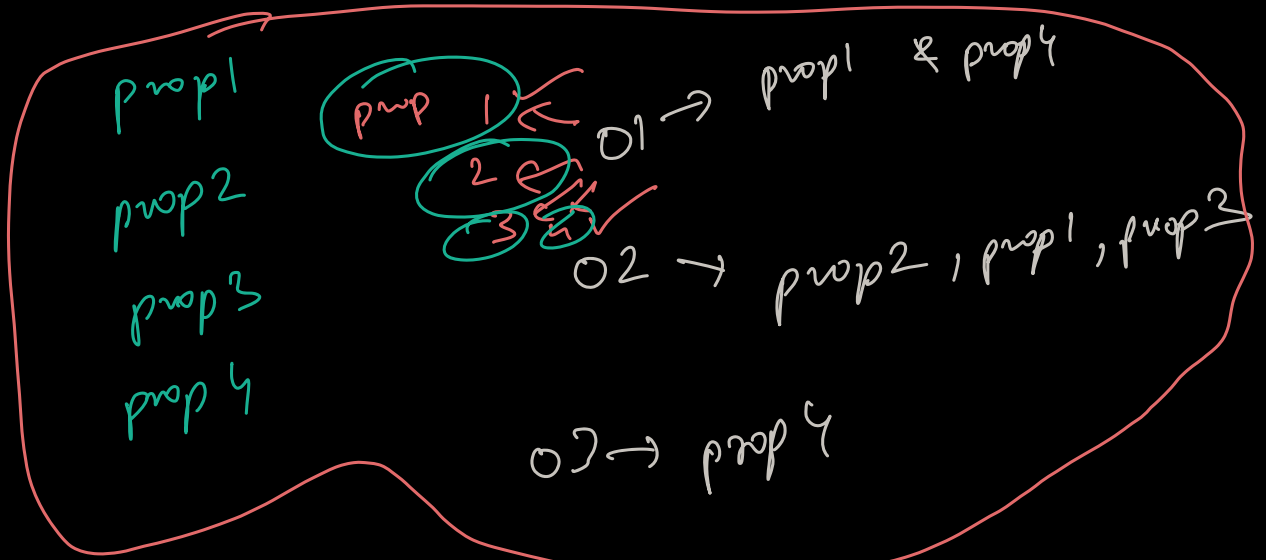 prop1
prop2
prop3
prop4
prop 1
2
3 4
O1 → prop1 & prop4
O2 → prop2, prop1, prop3
O3 → prop4